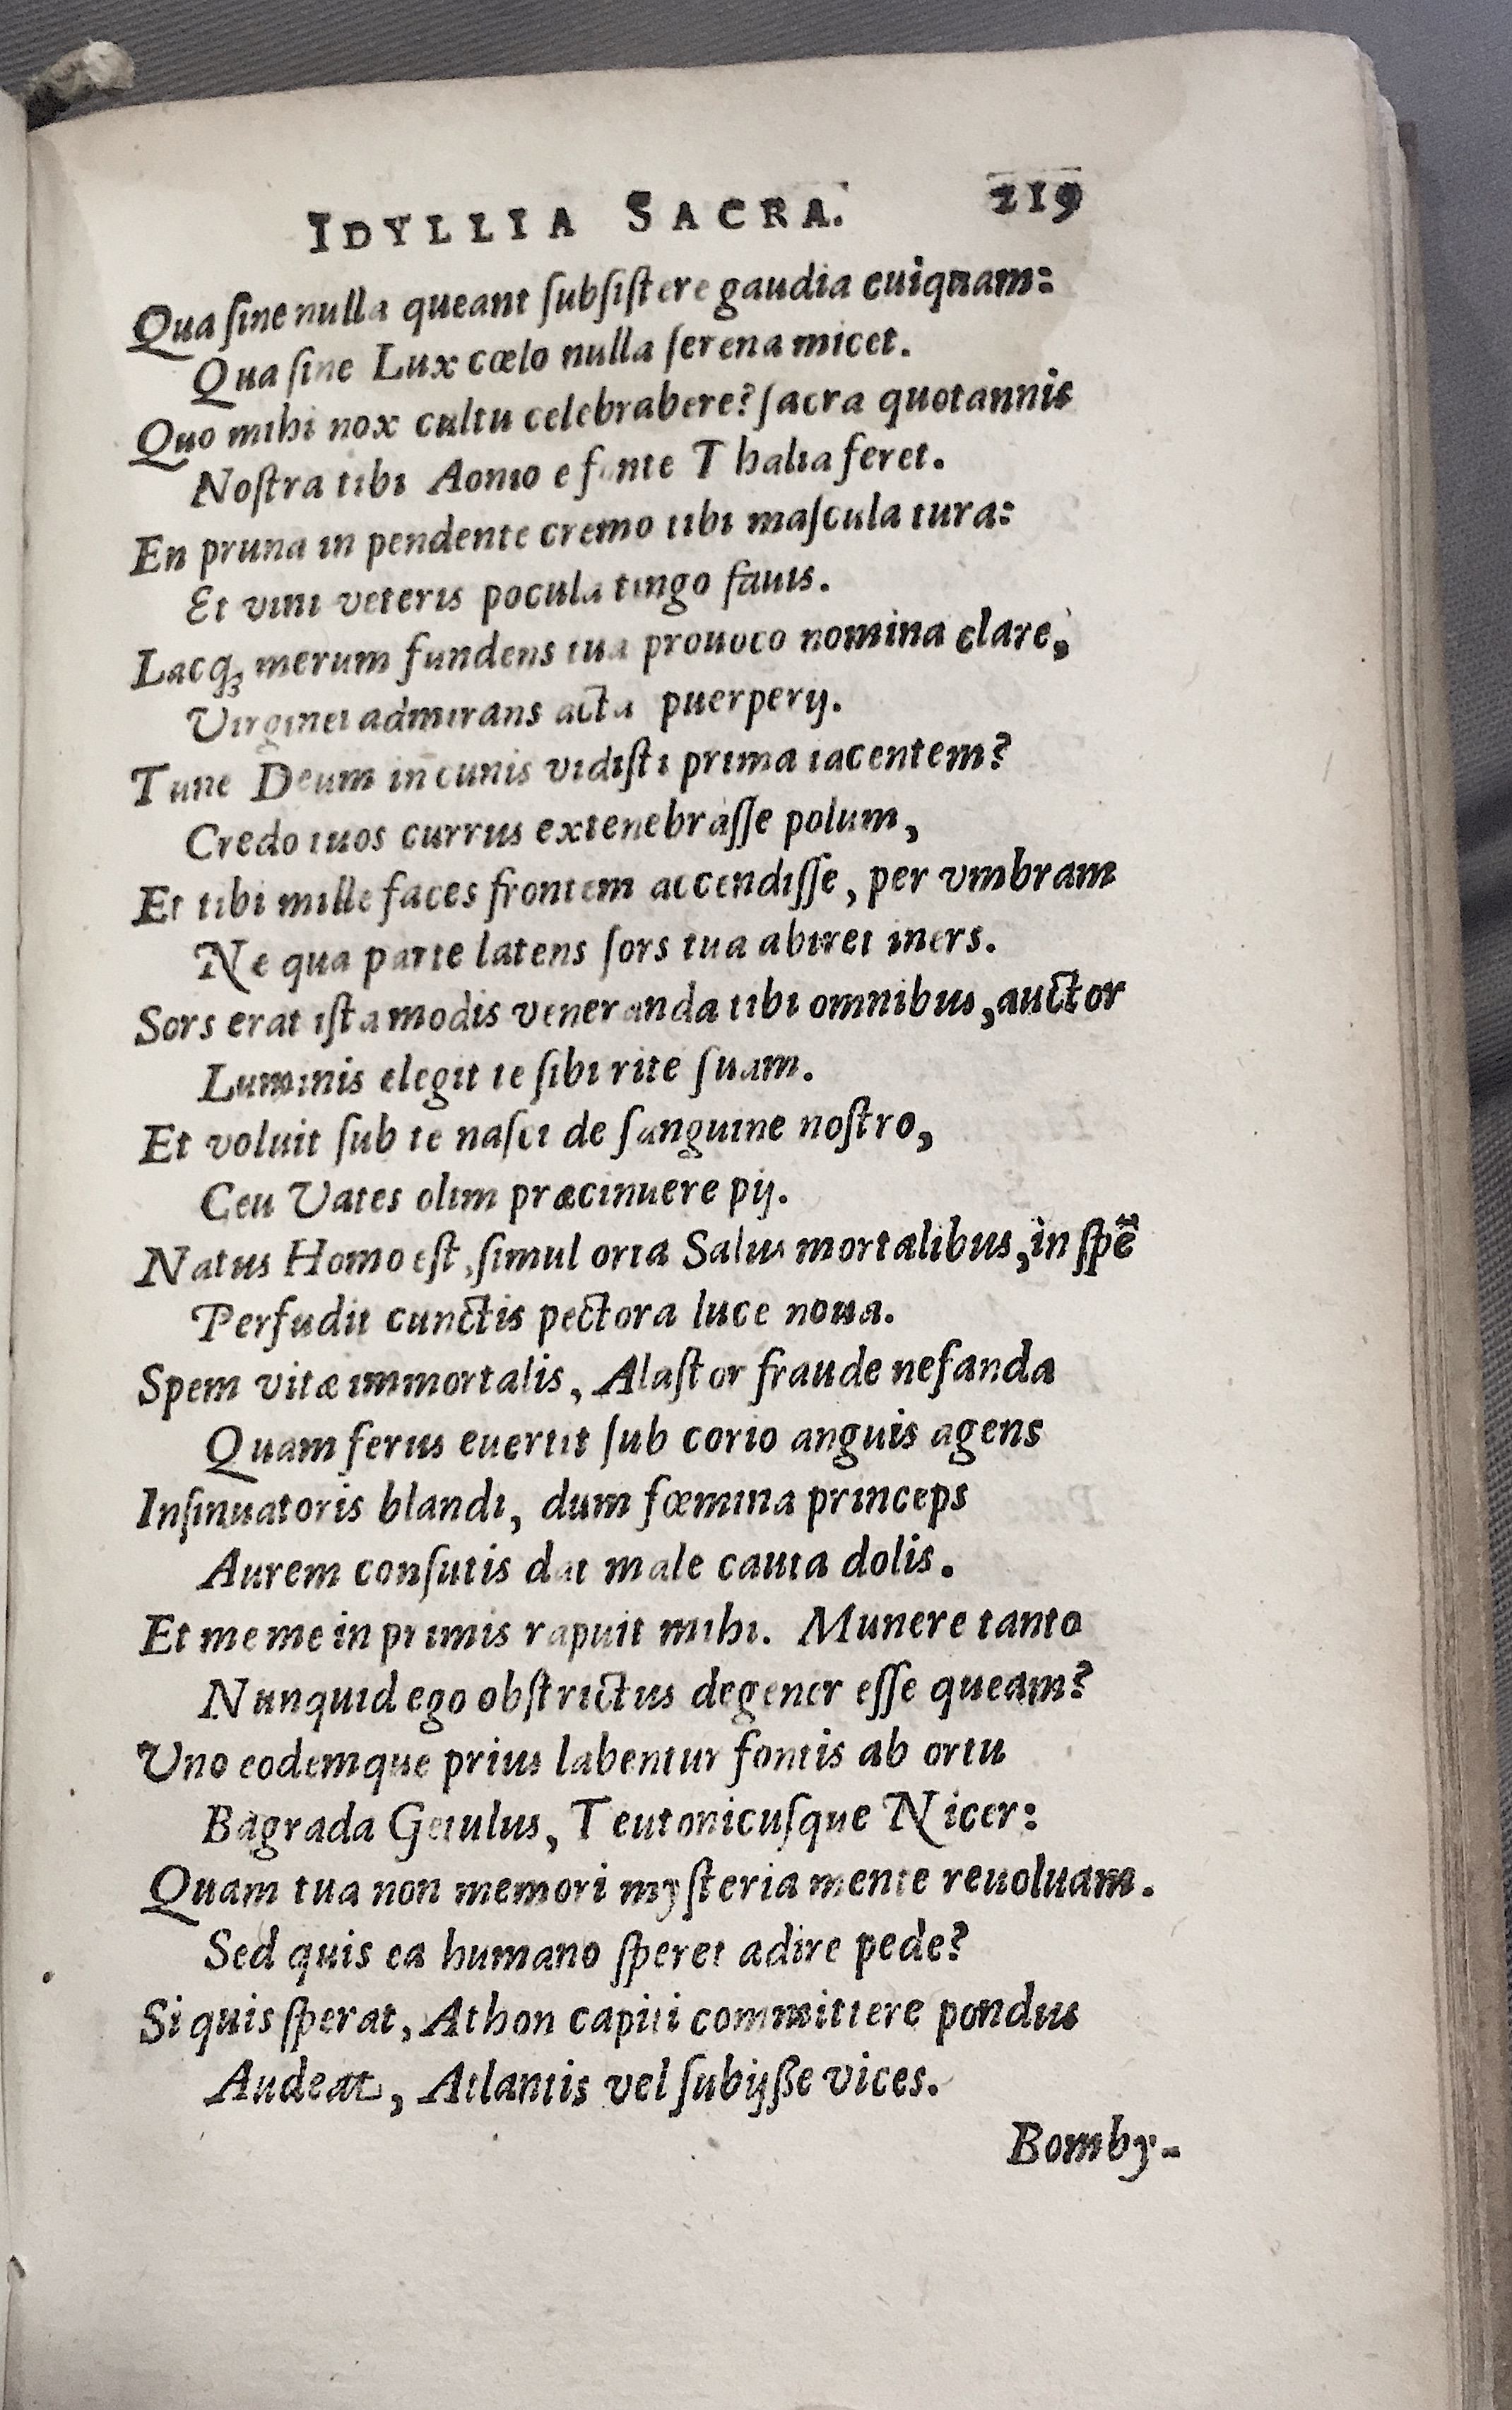 IDYLLIA SACRA. 219
Qua ſine nulla queant ſubſiſtere gaudia cuiquam:
Qua ſine Lux cœlo nulla ſerena micet.
Quo mihi nox cultu celebrabere? ſacra quotannis
Noſtra tibi Aonio e fonte Thalia feret.
En pruna in pendente cremo tibi maſcula tura:
Et vini veteris pocula tingo fauis.
Lacq; merum fundens tua prouoco nomina clare,
Virginei admirans acta puerperij.
Tune Deum in cunis vidiſti prima iacentem?
Credo tuos currus extenebràſſe polum,
Et tibi mille faces frontem accendiſſe, per vmbram
Ne qua parte latens ſors tua abiret iners.
Sors erat iſta modis veneranda tibi omnibus, auctor
Luminis elegit te ſibi rite ſuam.
Et voluit ſub te naſci de ſanguine noſtro,
Ceu Vates olim præcinuere pij.
Natus Homo eſt, ſimul orta Salus mortalibus, in ſpē
Perfudit cunctis pectora luce noua.
Spem vitæ immortalis, Alaſtor fraude nefanda
Quam ferus euertit ſub corio anguis agens
Inſinuatoris blandi, dum fœmina princeps
Aurem conſutis dat male cauta dolis.
Et meme in primis rapuit mihi. Munere tanto
Nunquid ego obſtrictus degener eſſe queam?
Uno eodemque prius labentur fontis ab ortu
Bagrada Getulus, Teutonicuſque Nicer:
Quam tua non memori myſteria mente reuoluam.
Sed quis ea humano ſperet adire pede?
Si quis ſperat, Athon capiti committere pondus
Audeat, Atlantis vel ſubijße vices.
Bomby-